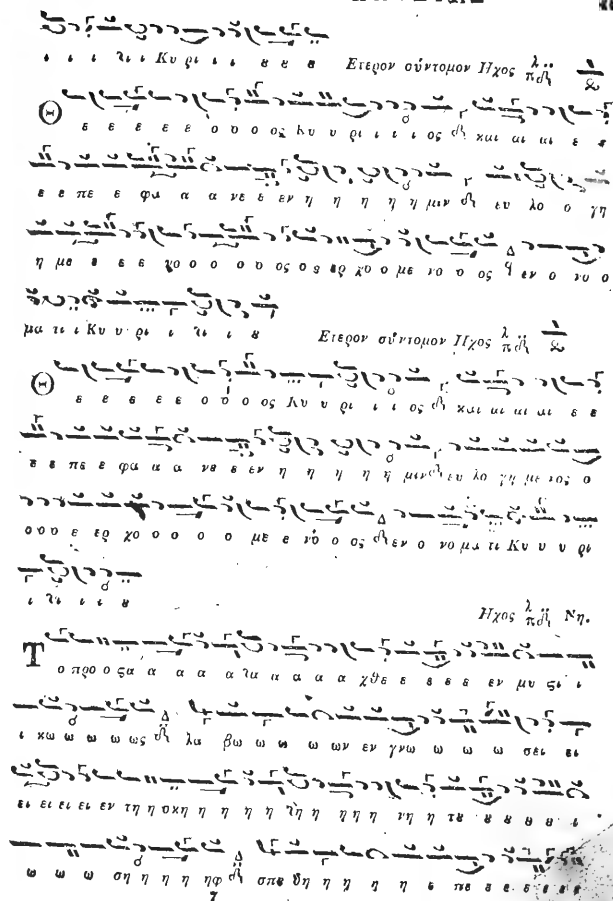 ι ι ι τι ι Κυ ρι ι ι ου ου ου Ετερον σύντομον Ηχος λ πα
Θ ε ε ε ε ε ο ο ο ο ος Κυ υ ρι ι ι ι ος και αι αι ε ε
ε ε πε ε φα α α νε ε εν η η η η η μιν ευ λο ο γη
η με ε ε ε χο ο ο ο ο ο ος ο ε ερ χο ο με νο ο ος εν ο νο ο
μα τι ι Κυ υ ρι ι τι ι ου Ετερον σύντομον Ηχος λ πα
Θ ε ε ε ε ε ο ο ο ος Κυ υ ρι ι ι ι ος και αι αι αι ε ε
ε ε πε ε φα α α νε ε εν η η η η η μιν ευ λο γη με νος ο
ο ο ο ε ερ χο ο ο ο ο με ε νο ο ος εν ο νο μα τι Κυ υ υ ρι
ι τι ι ι ου Ηχος λ πα Νη.
Τ ο προ ο ξα α α α α τα α α α α χθε ε ε ε ε εν μυ ςι ι
ι κω ω ω ω ως λα βω ω ω ω ων εν γνω ω ω ω σει ει
ει ει ει ει εν τη η σκη η η η η τη η η η η νη η του ου ου ου ου ι
ω ω ω ση η η η ηφ σπου δη η η η η ε πε ε ε ε ε ε